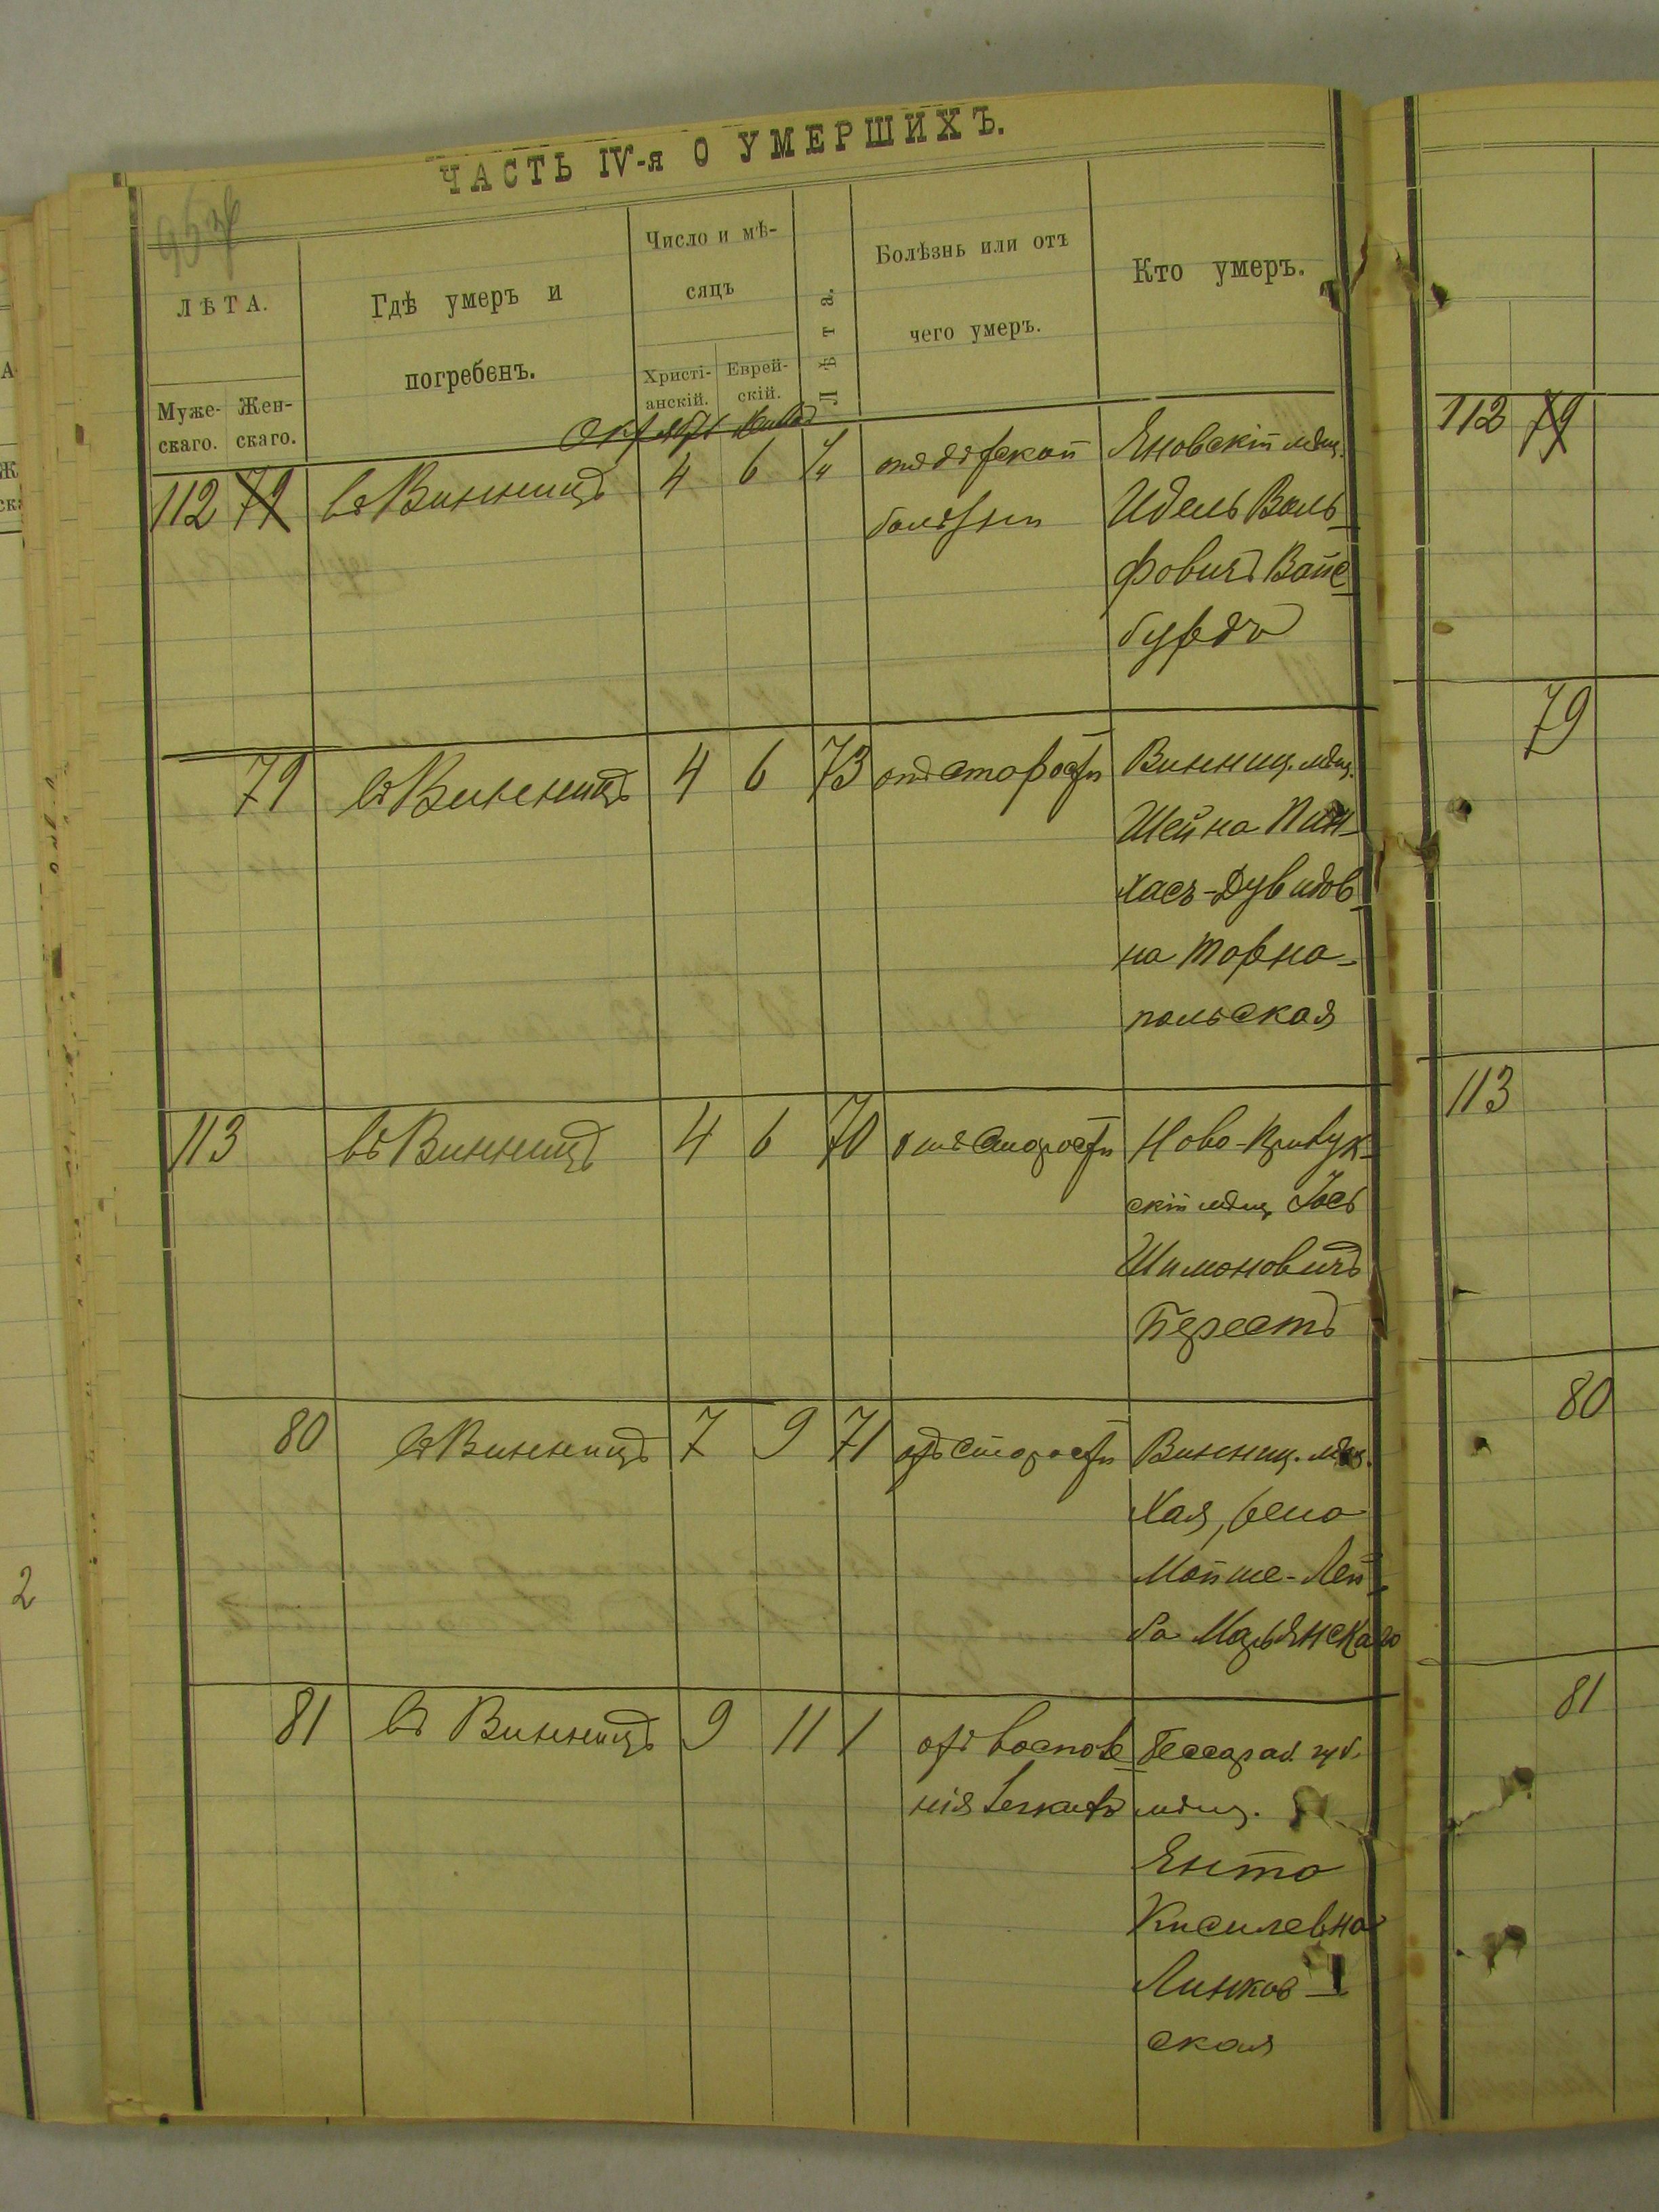 ЧАСТЬ IV-я О УМЕРШИХЪ.
ЛѢТА.
Муже-скаго.
Жен-скаго.
Гдѣ умеръ и
погребенъ.
Число и мѣ-
сяцъ
Христі-анскій.
Еврей-скій.
Лѣта.
Болѣзнь или отъ
чего умеръ.
Кто умеръ.
Октябр
112 79 въ Винницѣ 4 6 отъ дѣтской Яновскій мѣщ.
болѣзни Идель Воль-
фовичъ Вайс-
бурдъ
79 въ Винницѣ 4 6 73 отъ старости Винниц. мѣщ.
Шейна Пин-
хасъ-Дувидов-
на Торно-
польская
113 въ Винницѣ 4 6 70 отъ старости Ново-
скій мѣщ. Іось
Шимоновичъ
Берестъ
80 въ Винницѣ 7 9 71 отъ старости Винниц. мѣщ.
Хая, жена
Мойше-Лей-
ба Марьянскаго
81 въ Винницѣ 9 11 1 отъ воспале-
нія легкихъ
Бессараб. губ.
мѣщ.
Ента
Кисилевна
Линков-
ская
112 79
79
113
80
81
2